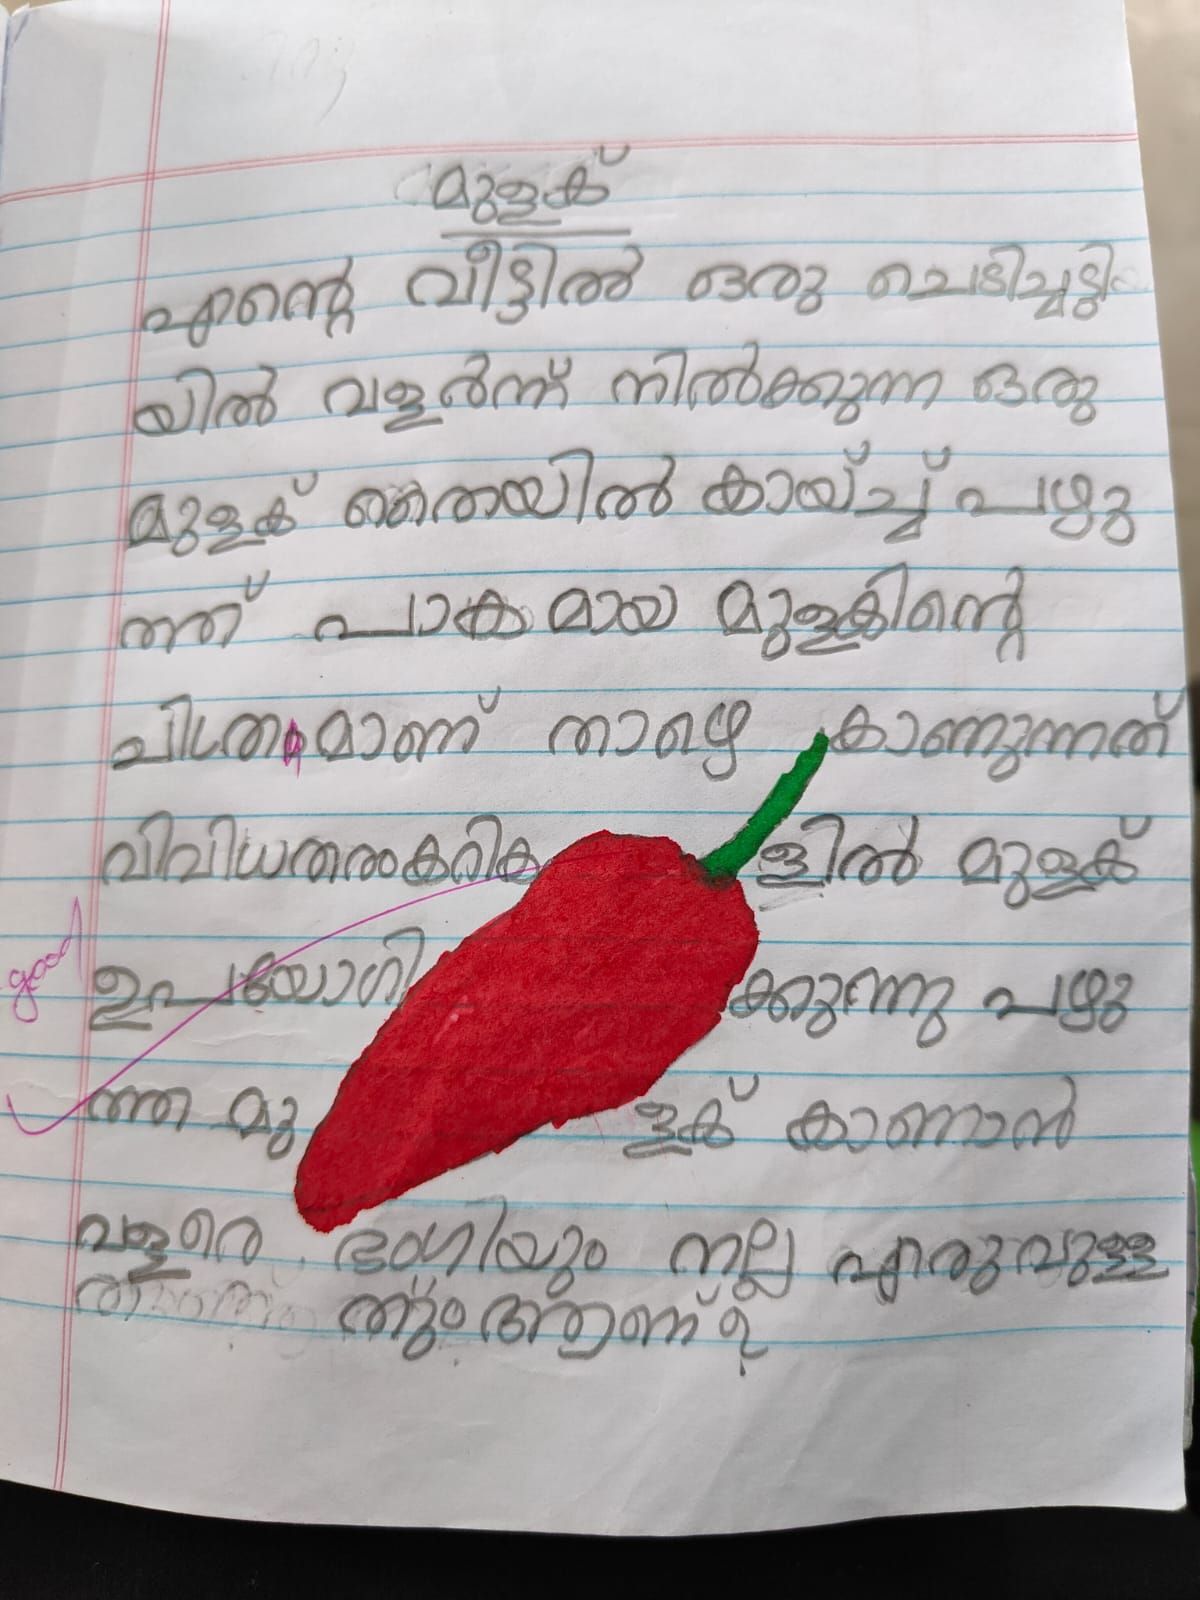 മുളക്
എന്റെ വീട്ടിൽ ഒരു ചെടിച്ചട്ടി
യിൽ വളർന്ന് നിൽക്കുന്ന ഒരു
മുളക് തൈയിൽ കായ്ച്ച് പഴു
ത്ത് പാകമായ മുളകിന്റെ
ചിത്രമാണ് താഴെ കാണുന്നത്
വിവിധതരംകറിക ളിൽ മുളക്
good ഉപയോഗി ക്കുന്നു പഴു
ത്ത മു ളക് കാണാൻ
വളരെ ഭംഗിയും നല്ല എരുവുള്ള
തും ആണ്